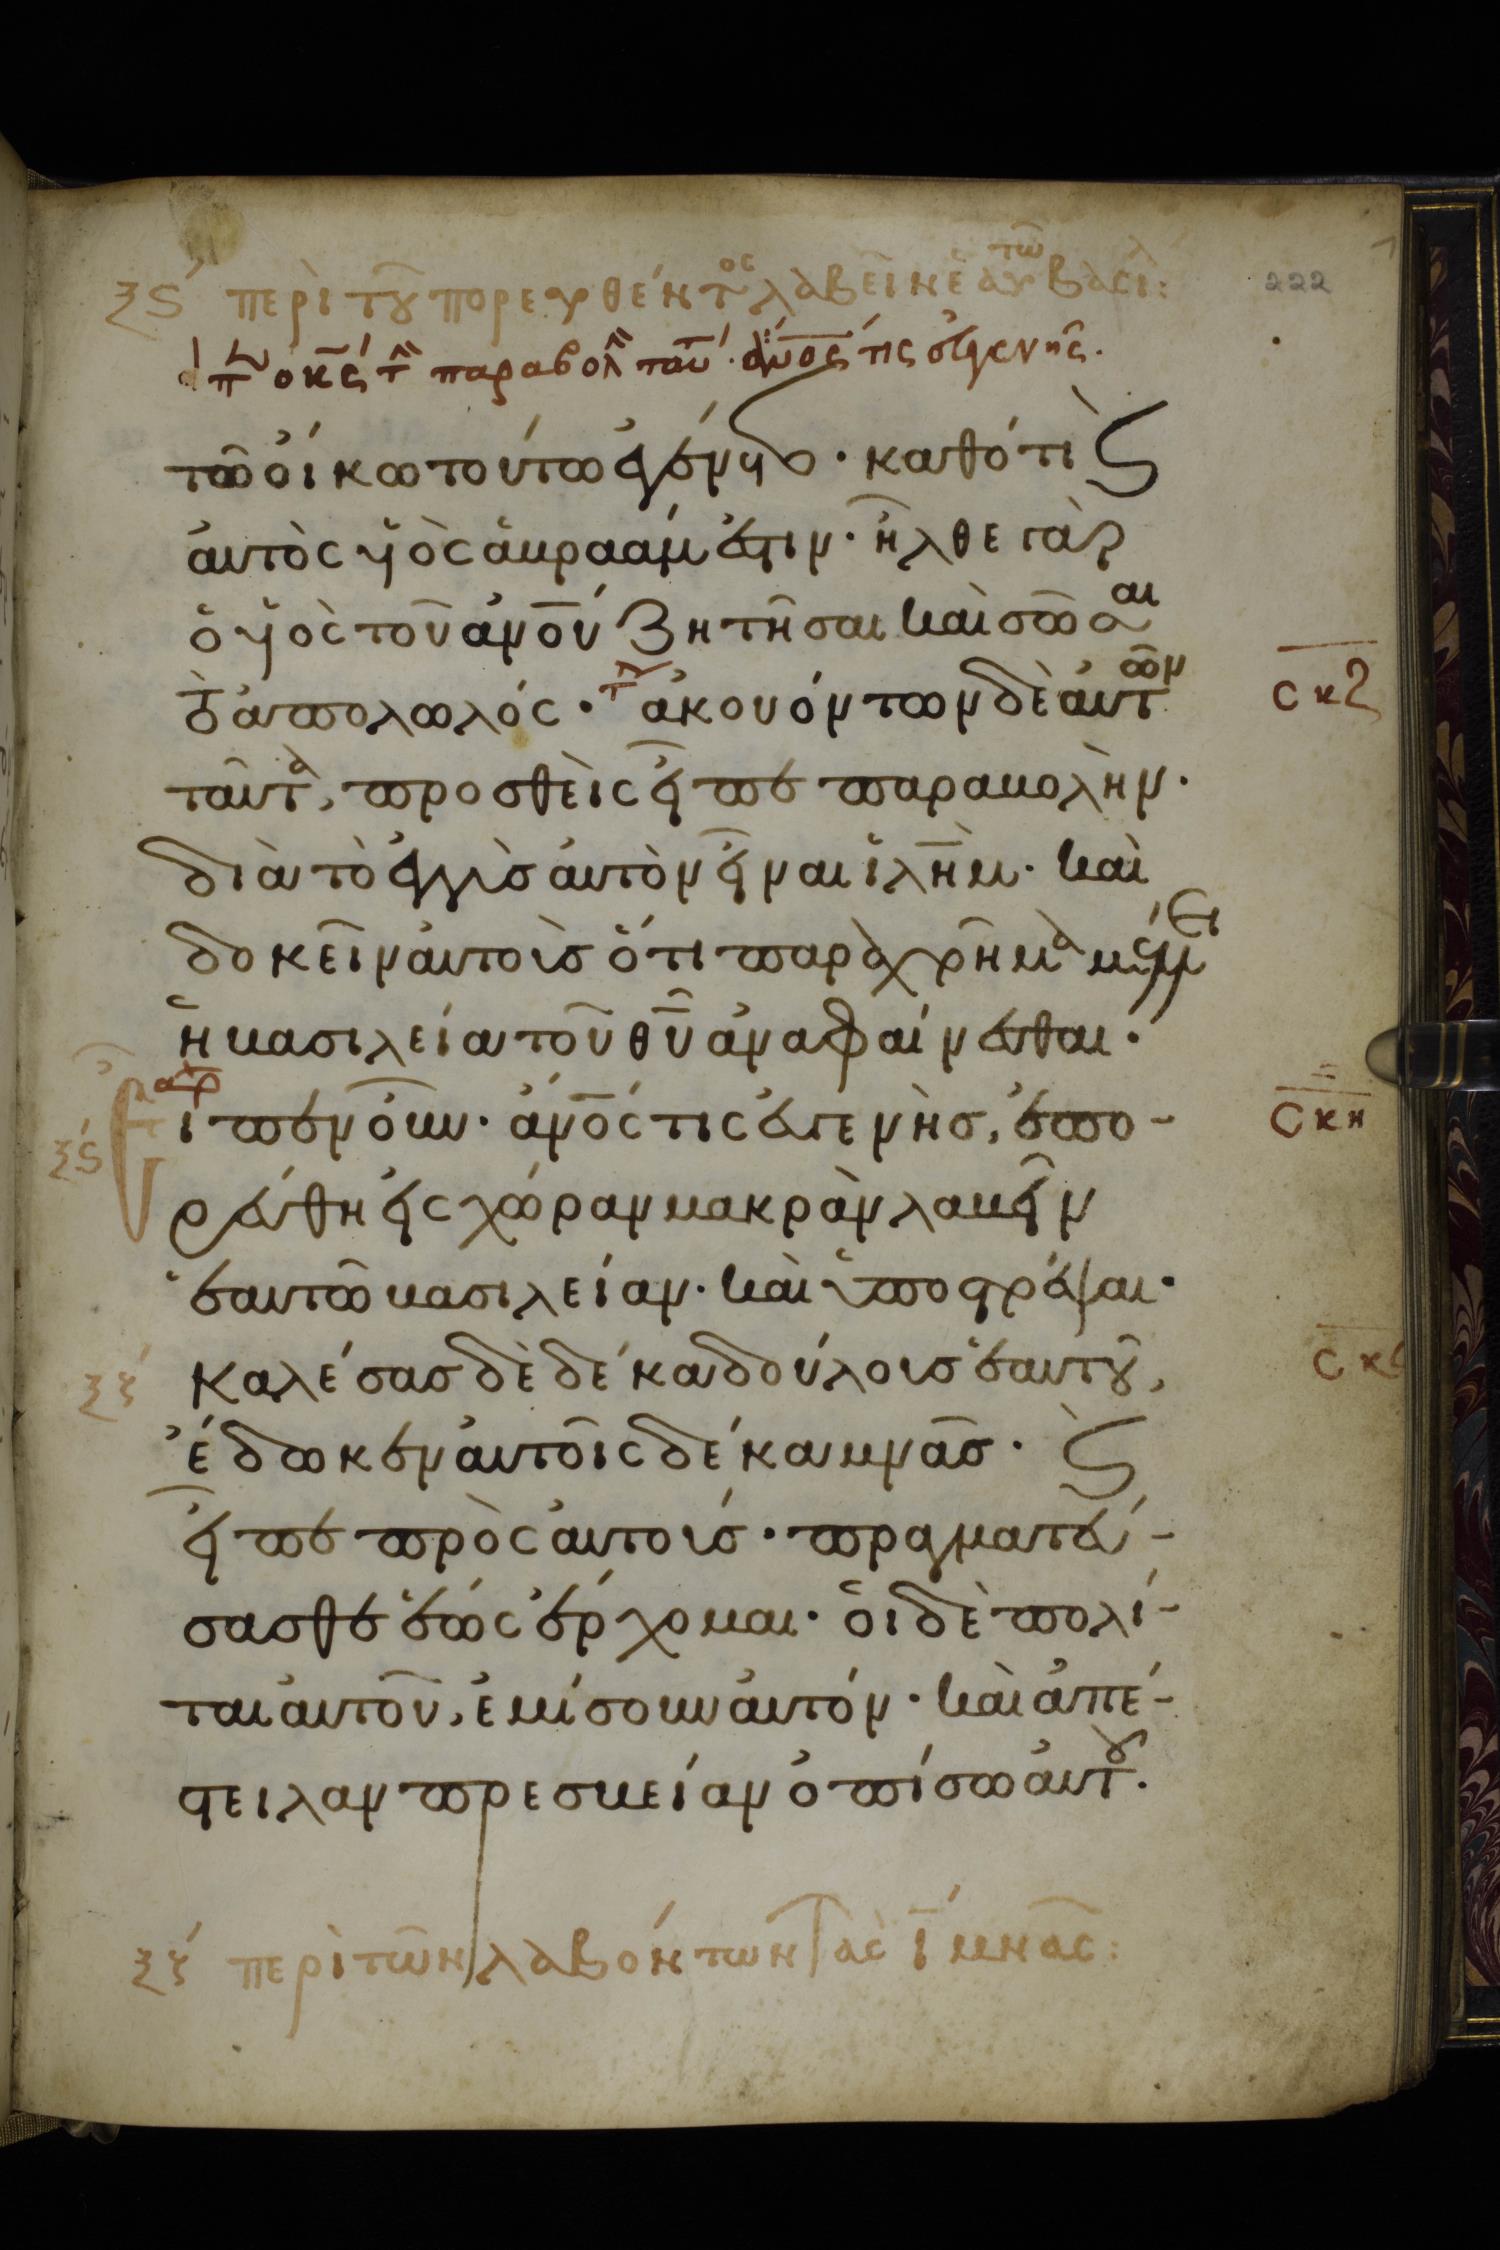 ξϛ΄ περὶ τοῦ πορευθέντος λαβεῖν ἑαυτῶ βασι:
222
εἶπεν ὁ κς τ παραβολ ταύτ· ἄνος τίς εὐγενής.
τῶ οἴκω τούτω ἐγένετο· καθότι καὶ
αὐτὸς ὑιὸς ἀβραάμ ἐστιν· ἦλθε γὰρ
ὁ ὑιὸς τοῦ ἀνου ζητῆσαι καὶ σῶσαι
τὸ ἀπολωλός· ἀκουόντων δὲ αὐτῶν
σκζ
ταῦτα, προσθεὶς εἶπε παραβολὴν·
διὰ τὸ ἐγγὺς αὐτὸν εἶναι ιλημ· καὶ
δοκεῖν αὐτοὺς ὅτι παραχρῆμα μέλλει
ἡ βασιλεία τοῦ θυ ἀναφαίνεσθαι·
εἶπεν οὖν· ἀνος τις εὐγενὴς, ἐπο-
ξϛ΄
σκη
ρεύθη εἰς χώραν μακρὰν λαβεῖν
ἑαυτῶ βασιλείαν· καὶ ὑποστρέψαι·
καλέσας δὲ δέκα δούλους ἑαυτοῦ,
ξζ΄
σκ
ἔδωκεν αὐτοῖς δέκα μνᾶς· καὶ
εἶπε πρὸς αὐτούς· πραγματεύ-
σασθε ἕως ἔρχομαι· οἱ δὲ πολί-
ται αὐτοῦ, ἐμίσουν αὐτόν· καὶ ἀπέ-
στειλαν πρεσβείαν ὀπίσω αὐτοῦ·
ξζ΄ περὶ τῶν λαβόντων τὰς ι μνᾶς: